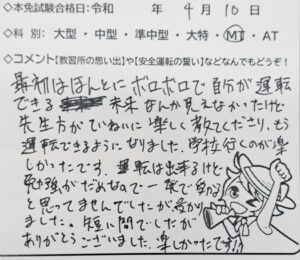 ◇本免試験合格日:令和　年 4月10日
◇科 別:大型・中型・準中型・大特・MT・AT
◇コメント【教習所の思い出】や【安全運転の誓い】などなんでもどうぞ!
最初はほんとにボロボロで自分が運転
できる 未来なんか見えなかったけど
先生方がていねいに楽しく教えてくださり、もう
運転できるようになりました。学校行くのが楽
しかったです。運転は出来るけど
勉強がだめなので一発で受かる
と思ってませんでしたが受かり
ました。短い間でしたが
ありがとうございました。楽しかったです!!